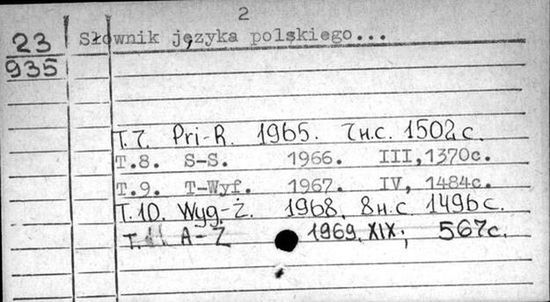 2
23
935
Słownik języka polskiego...
T.7. Pri-R. 1965. 7н.с. 1502с.
T.8. S-Ś. 1966. III,1370с.
T.9. T-Wyf. 1967. IV, 1484с.
T.10. Wyg-Ż. 1968. 8н.с 1496с.
T.11 A-Z 1969. XIX; 567с.